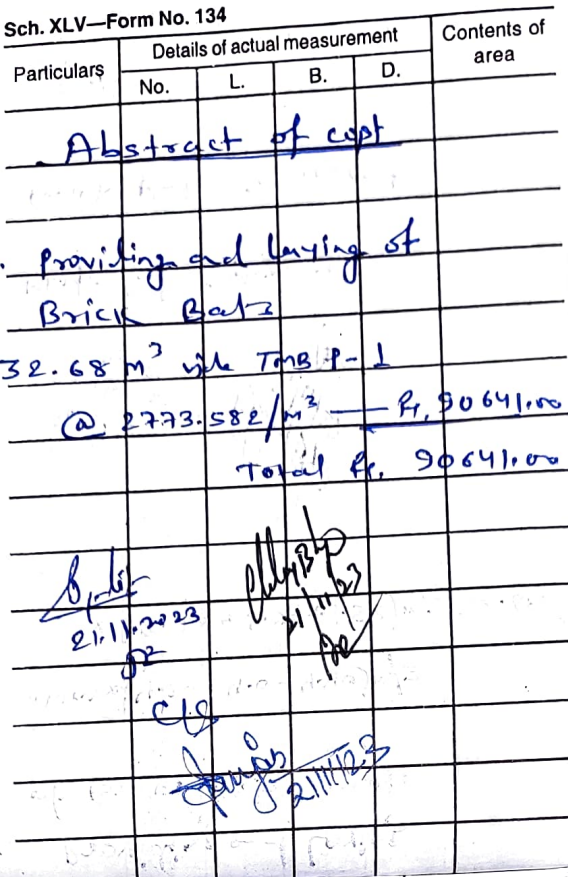 Sch. XLV—Form No. 134
Particulars
Details of actual measurement
Contents of area
No. L. B. D.
Abstract of cost
Providing and laying of
Brick Bats
32.68 m³ vide TMB P-1
@ 2773.582/m³ — Rs. 90641.00
Total Rs. 90641.00
21.11.2023
21/11/23
21/11/23